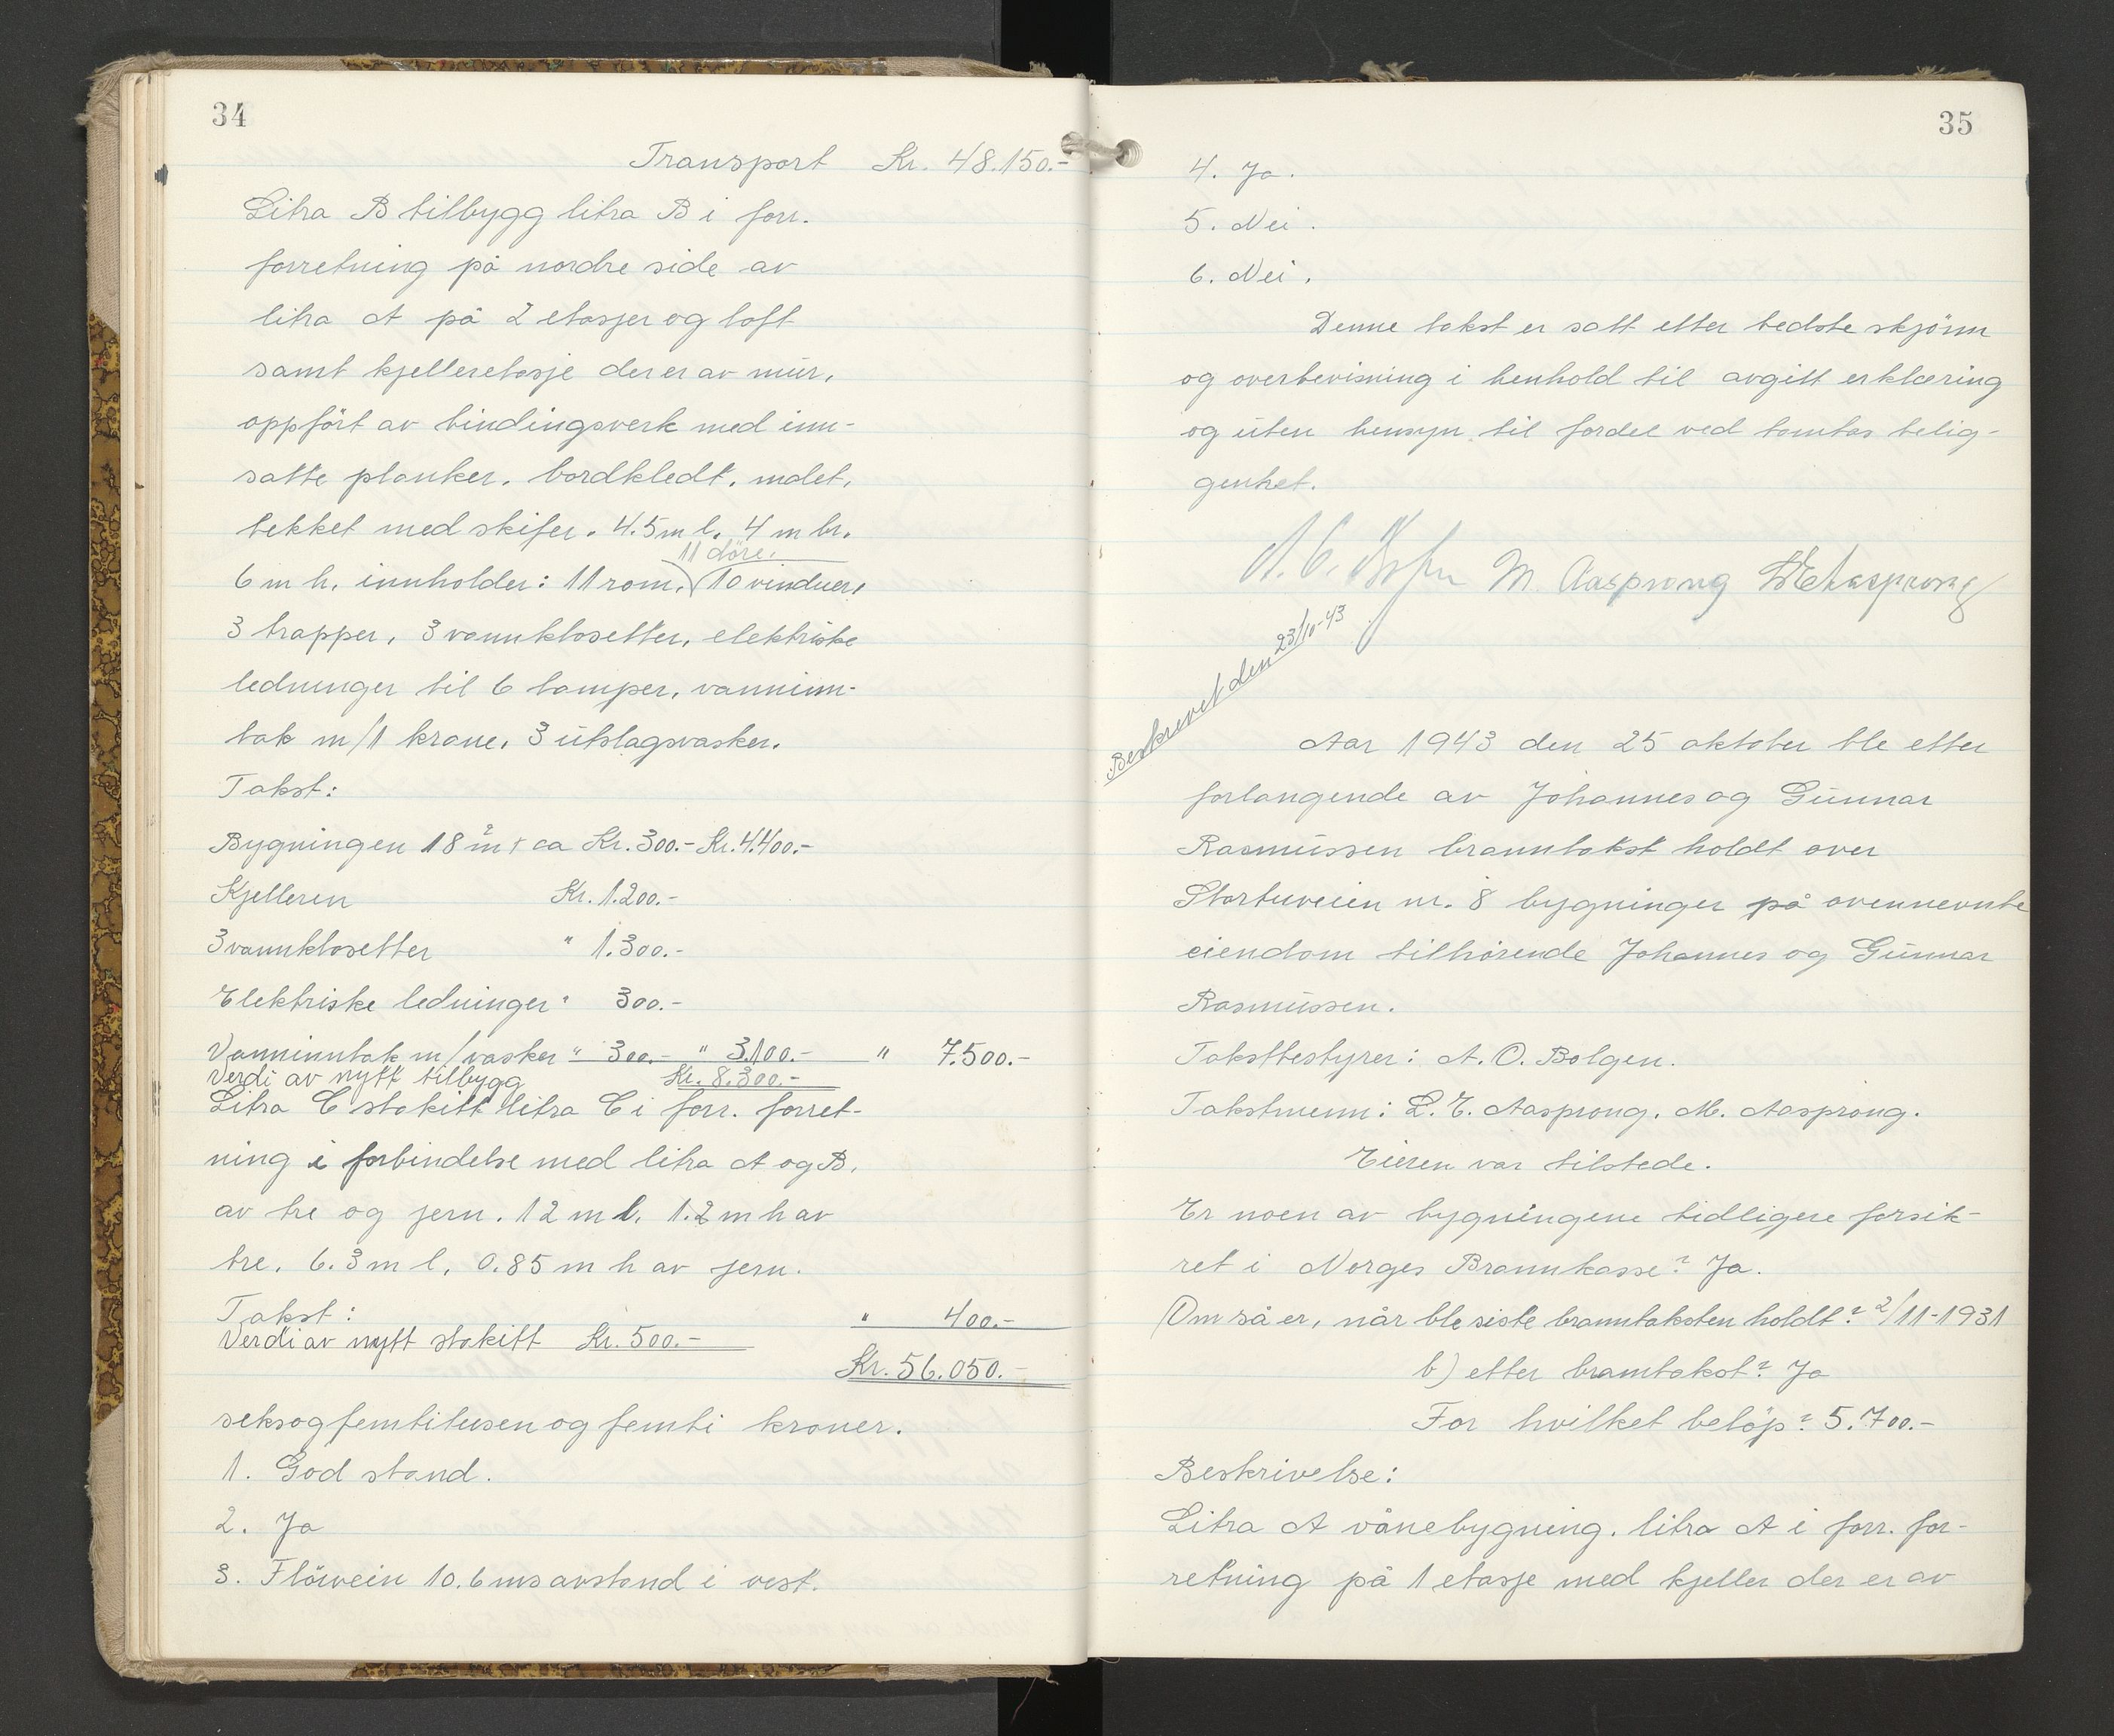 34
Transport Kr. 48.150.-
Litra B tilbygg litra B i forr.
forretning på nordre side av
litra A på 2 etasjer og loft
samt kjelleretasje der er av mur,
oppført av bindingsverk med inn-
satte planker, bordkledt, malet,
tekket med skifer. 4.5 m l. 4 m br.
11 døre,
6 m h. innholder: 11 rom, (10 vinduer,
3 trapper, 3 vannklosetter, elektriske
ledninger til 6 lamper, vanninn-
tak m/1 krane, 3 utslagsvasker.
Takst:
Bygningen 18 m² + ca Kr. 300.- Kr. 4.400.-
Kjelleren Kr. 1.200.-
3 vannklosetter " 1.300.-
Elektriske ledninger " 300.-
Vanninntak m/vasker " 300.- " 3.100.- " 7.500.-
Verdi av nytt tilbygg Kr. 8.300.-
Litra C stakitt litra C i forr. forret-
ning i forbindelse med litra A og B,
av tre og jern. 12 m l. 1.2 m h av
tre. 6.3 m l. 0.85 m h av jern.
Takst: " 400.-
Verdi av nytt stakitt Kr. 500.-
Kr. 56.050.-
seksogfemtitusenogfemti kroner.
1. God stand.
2. Ja
3. 10.6 ms avstand i vest.
35
4. Ja.
5. Nei.
6. Nei.
Denne takst er satt etter bedste skjønn
og overbevisning i henhold til avgitt erklæring
og uten hensyn til fordel ved tomtas belig-
genhet.
M. Aasprong L E Aasprong
Beskrevet den 23/10-43
Aar 1943 den 25 oktober ble etter
forlangende av Johannes og Gunnar
Rasmussen branntakst holdt over
Stortuveien nr. 8 bygninger på ovennevnte
eiendom tilhørende Johannes og Gunnar
Rasmussen.
Takstbestyrer: A. O. Bolgen.
Takstmenn: L. E. Aasprong. M. Aasprong.
Eieren var tilstede.
Er noen av bygningene tidligere forsik-
ret i Norges Brannkasse? Ja.
Om så er, når ble siste branntaksten holdt? 2/11-1931
b) etter branntakst? Ja
For hvilket beløp? 5.700.-
Beskrivelse:
Litra A vånebygning. litra A i forr. for-
retning på 1 etasje med kjeller der er av